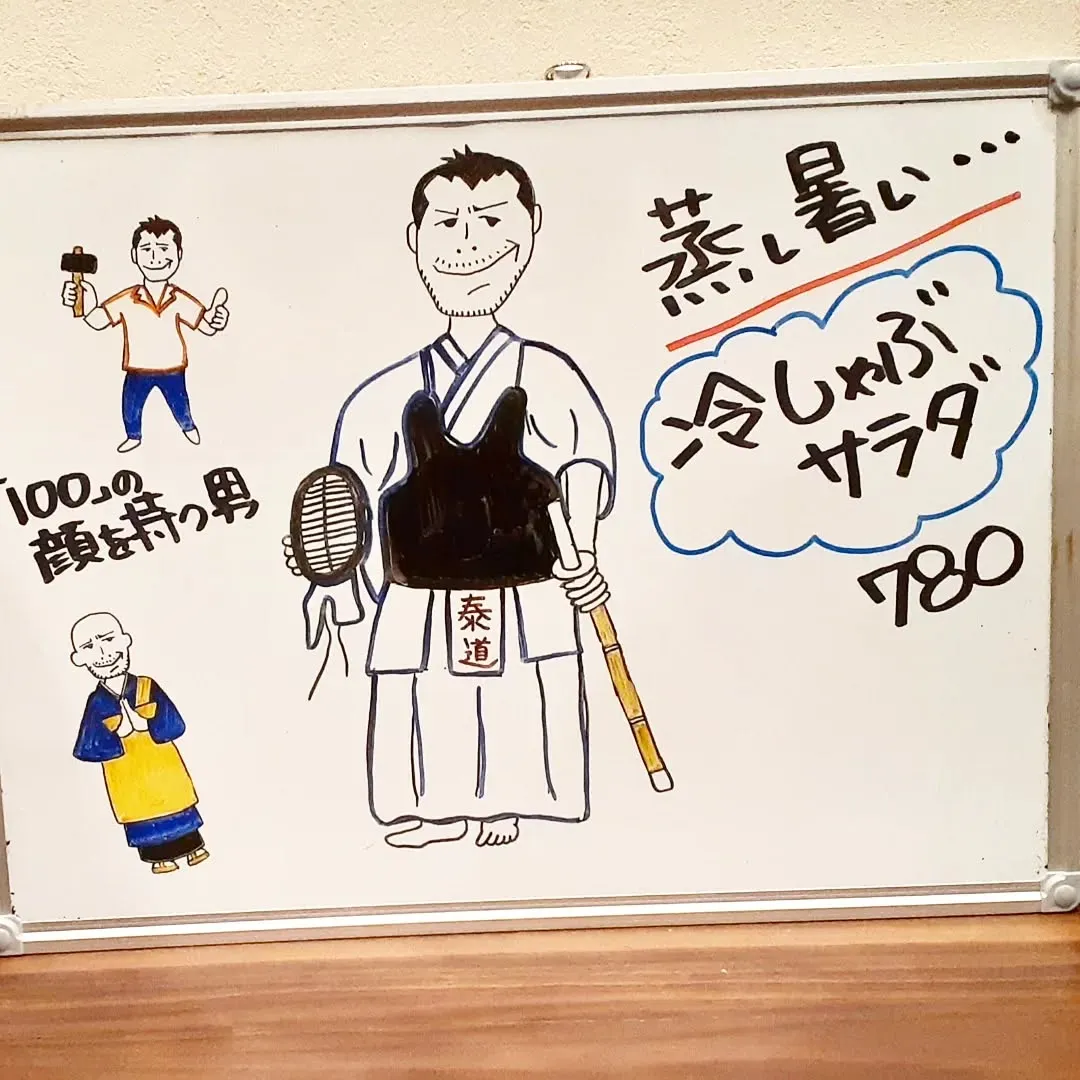 蒸し暑い…
冷しゃぶ
サラダ
780
「100」の
顔を持つ男
泰
道